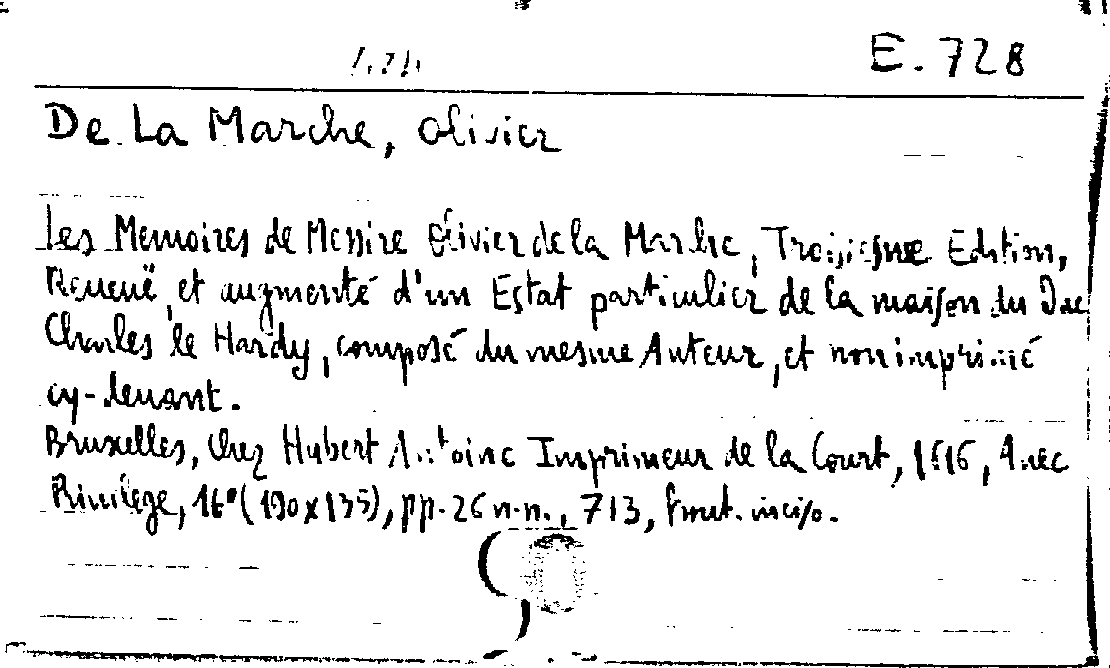 E. 728
De La Marche, Olivier
Les Memoires de Messire Olivier de la Marche, Troisiesme Edition,
Reueuë, et augmenté d'un Estat particulier de la maison du Duc
Charles le Hardy, composé du mesme Auteur, et non imprimé
cy-deuant.
Bruxelles, chez Hubert Antoine Imprimeur de la Court, 1616, Auec
Priuilege, 16° (190x135), pp. 26 n.n., 713, front. inciso.